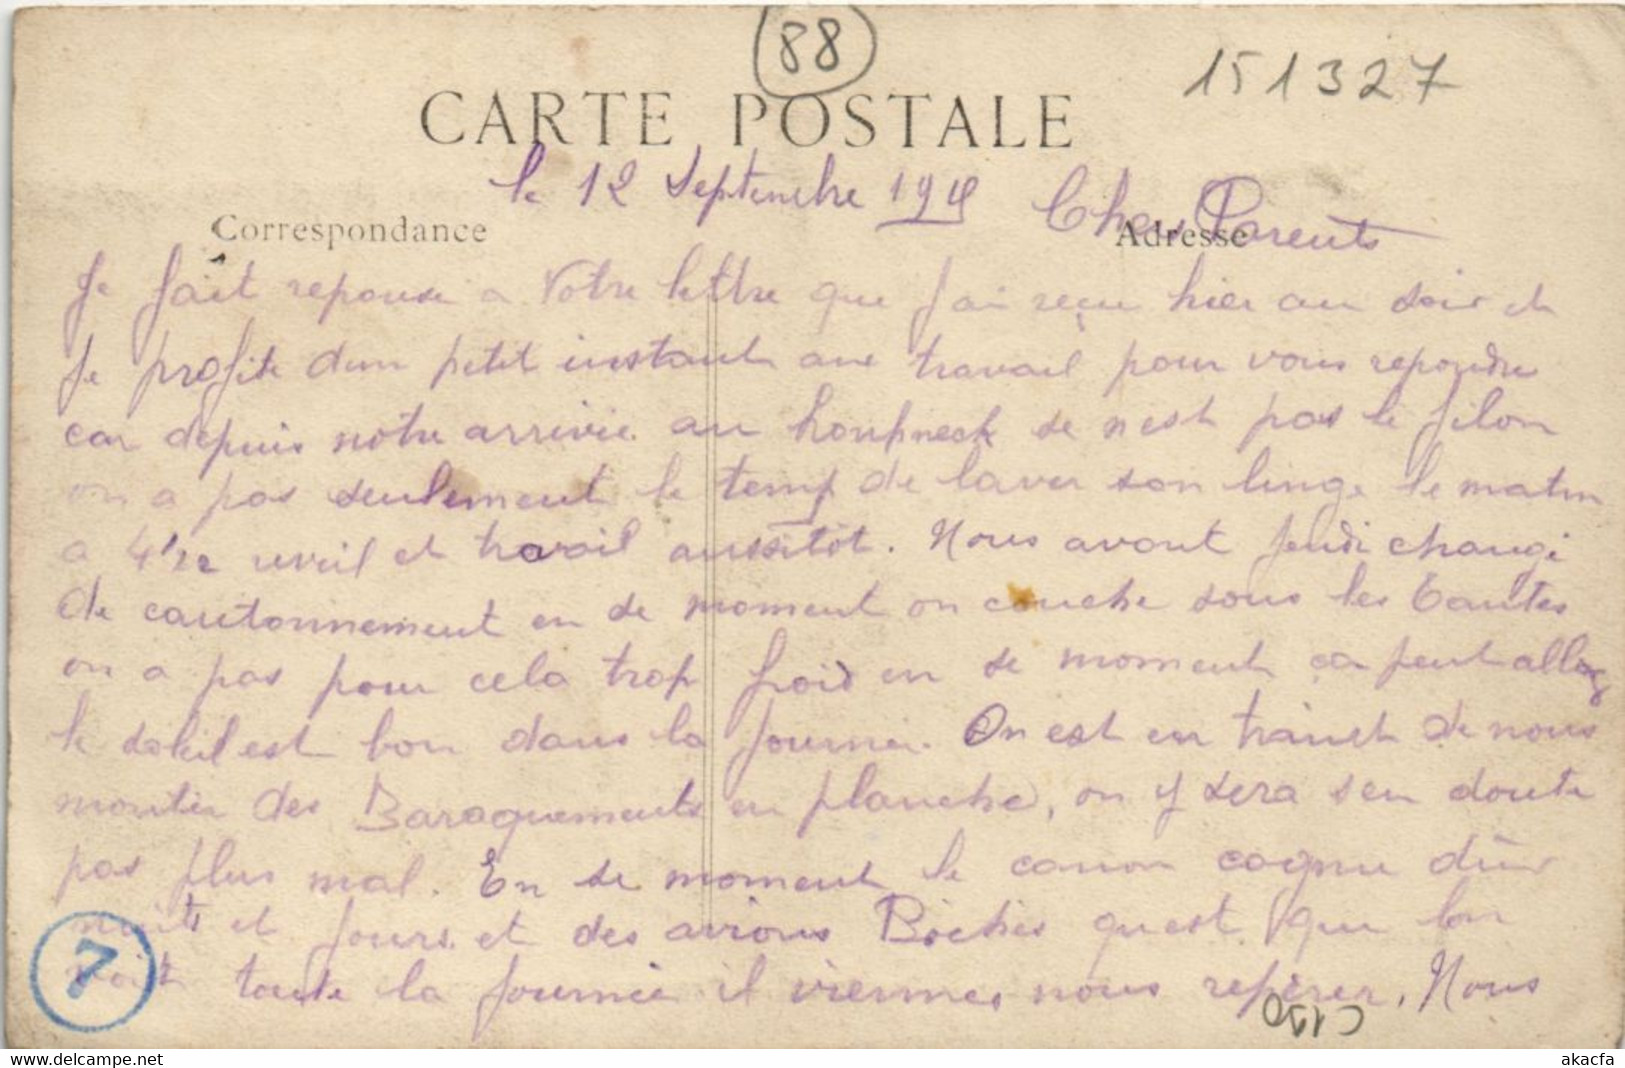 88
151327
CARTE POSTALE
le 12 Septembre Chers Parents
Correspondance
Adresse
Je fait reponse a Votre lettre que j'ai reçu hier au soir et
Je profite dun petit instant au travail pour vous repondre
car depuis notre arrivée au se n'est pas le filon
on a pas seulement le temp de laver son linge le matin
a 4'h et travail aussitôt. Nous avont jeudi changé
de cantonnement en se moment on couche sous les tantes
on a pas pour cela trop froid en se moment ça peut aller
le soleil est bon dans la journée. On est en traint de nous
monter des Baraquements en planche, on y sera s'en doute
pas plus mal. En se moment le canon cogne dûr
nuits et jours et des avions Boches quest que lon
voit toute la journée il viennes nous repérer. Nous
7
C190
delcampe.net
akacfa